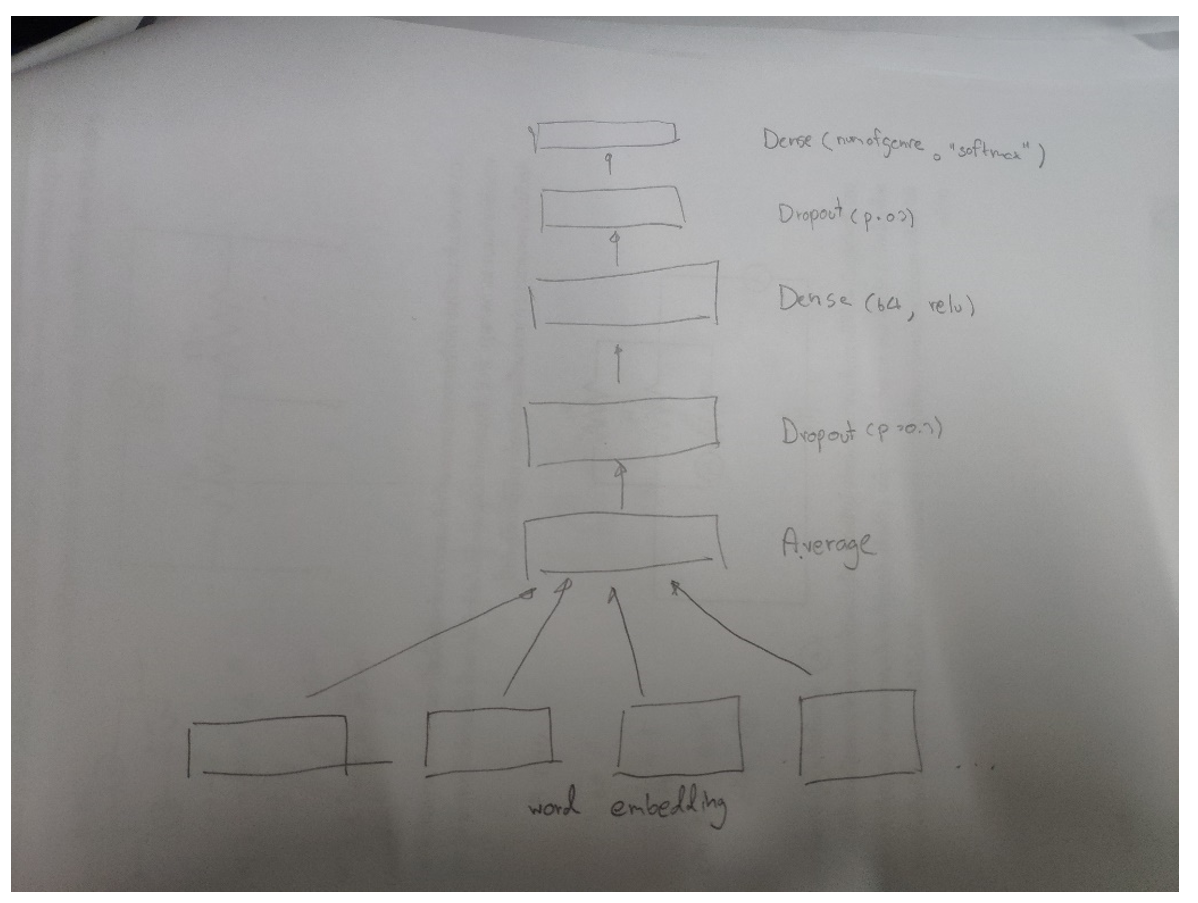 Dense (numofgenre, "softmax")
Dropout (p
Dense (64, relu)
Dropout (p
Average
...
word embedding